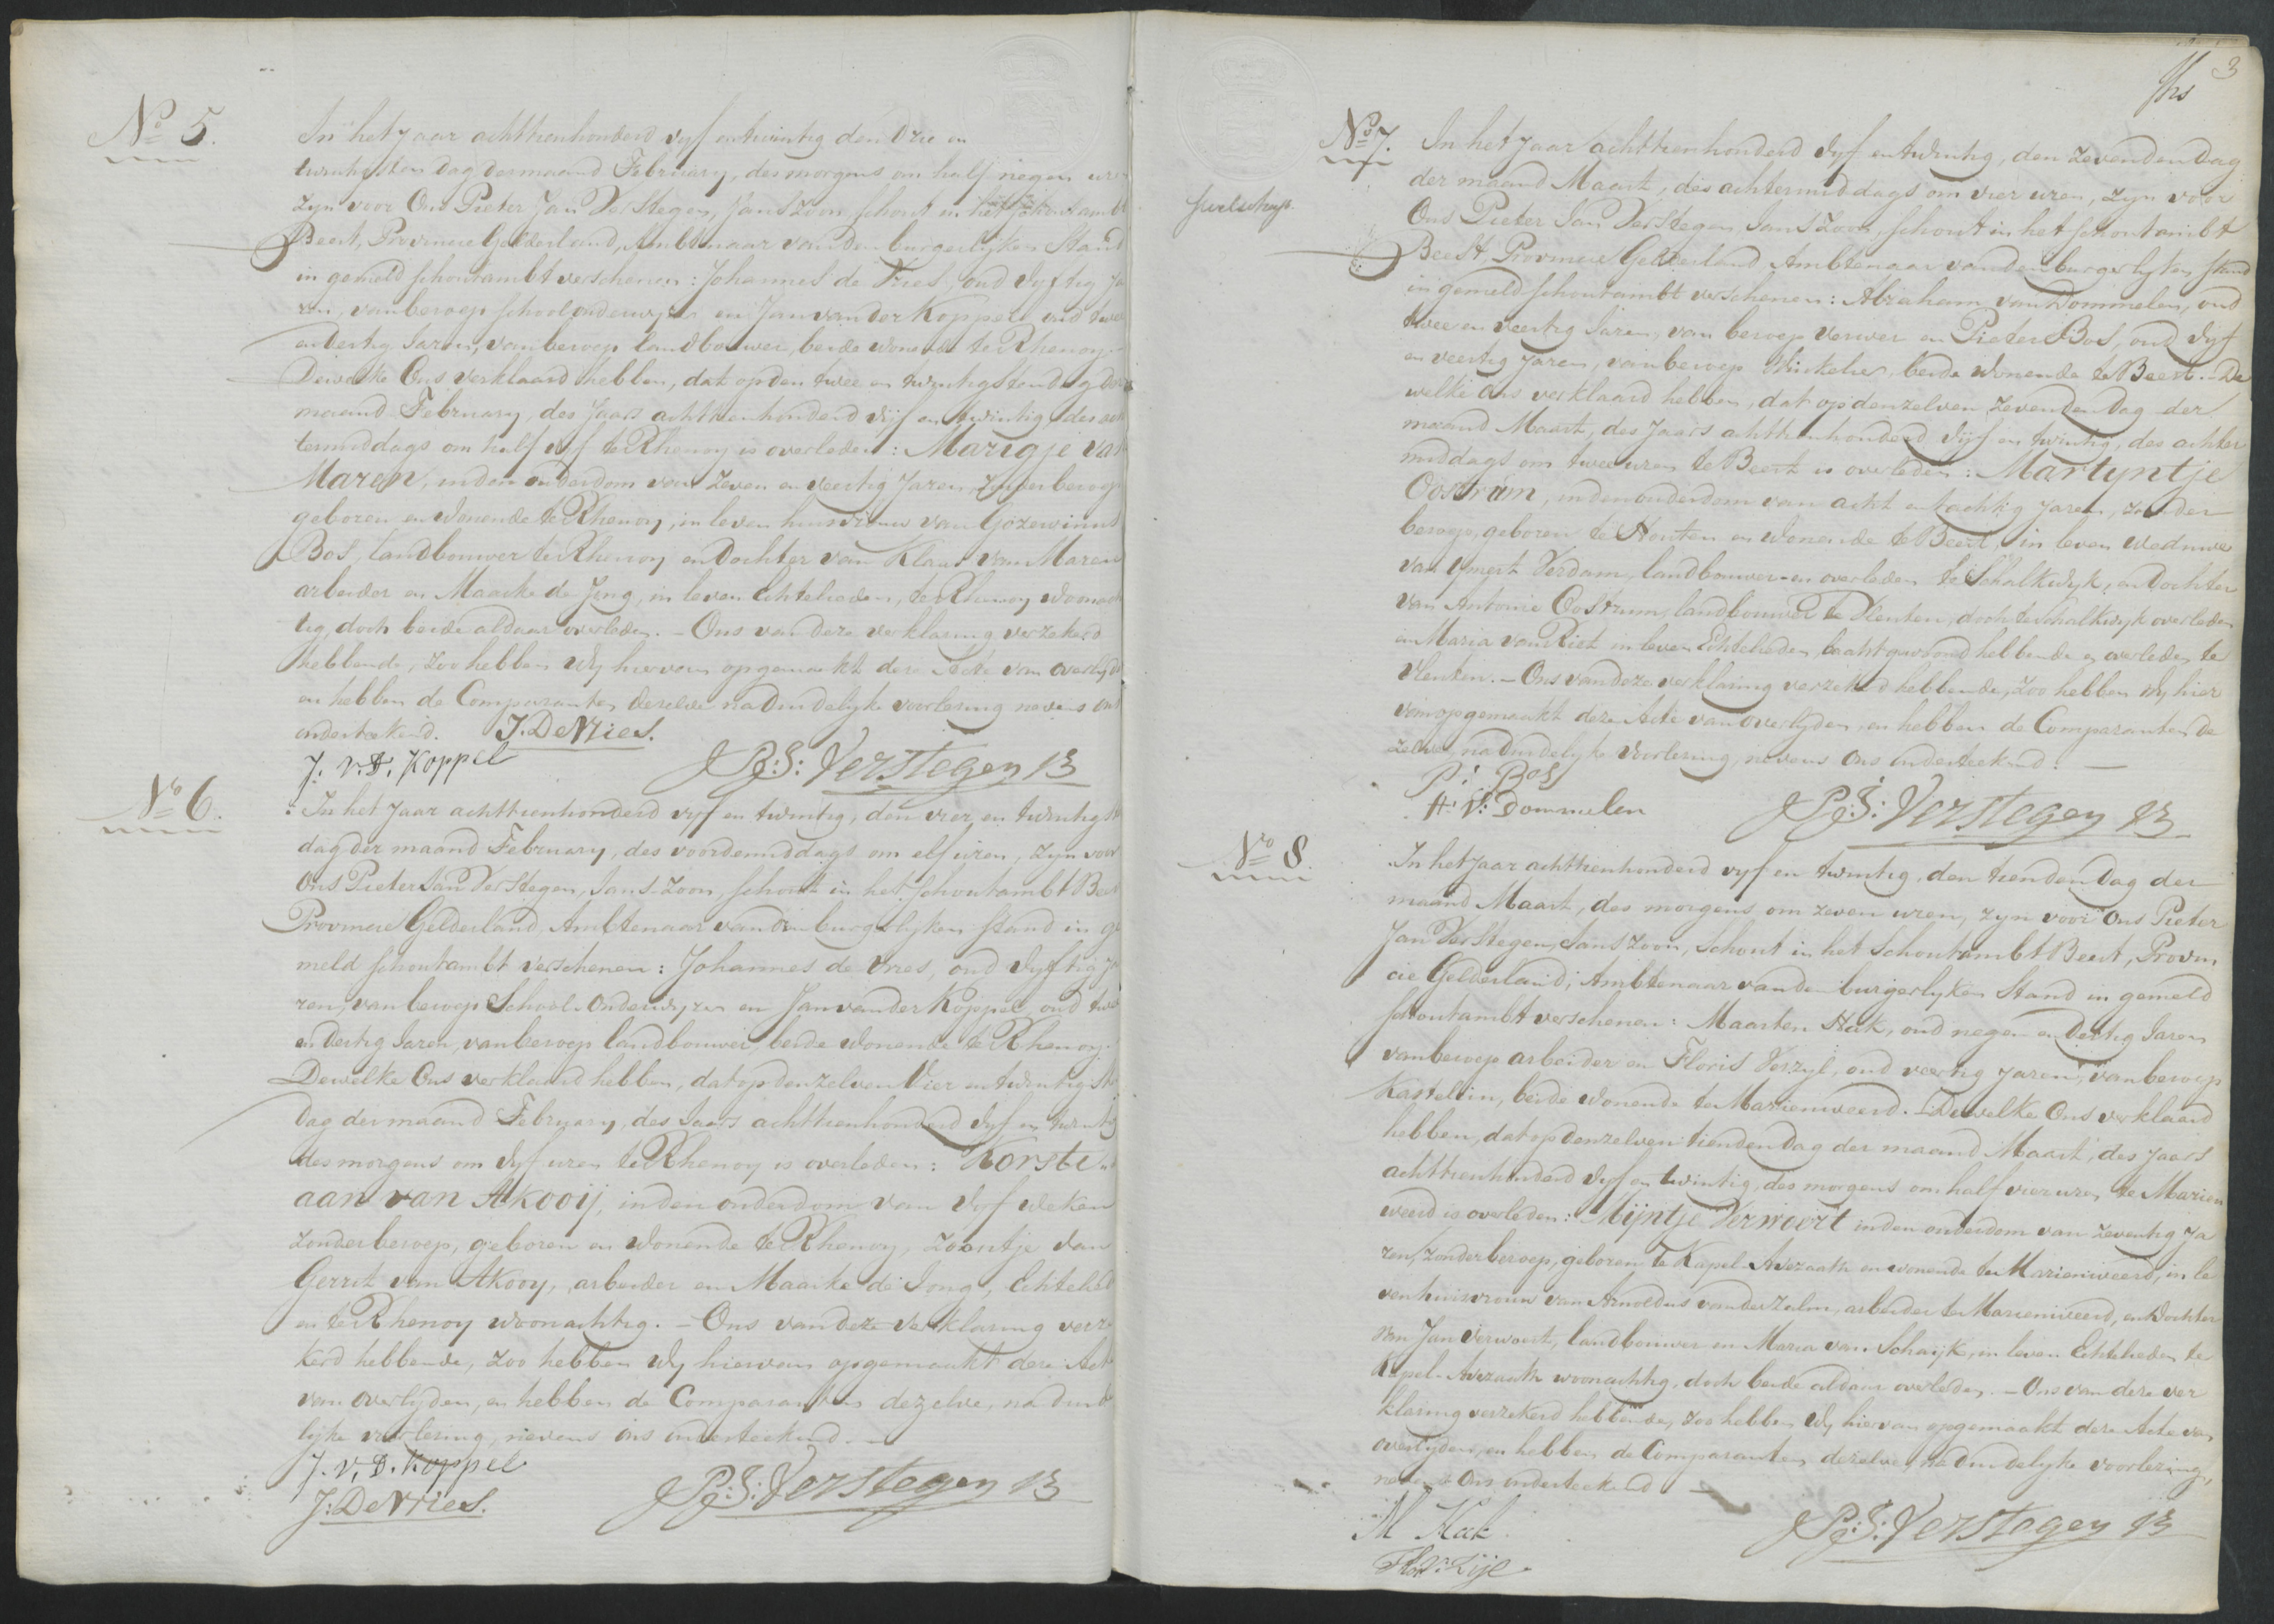 No 5.
In het Jaar achttienhonderd vyf en twintig den drie en
twintigsten dag der maand February, des morgens om half negen uren
zyn voor Ons Pieter Jan VerStegen, Jans Zoon, schout in het schoutambt
Beest, Provincie Gelderland, Ambtenaar van den burgerlyken Stand
in gemeld schoutambt verschenen: Johannes de Vries, oud vyftig Ja
ren, van beroep schoolonderwyzer en Jan van der Koppel, oud twee
en dertig Jaren, van beroep landbouwer, beide wonende te Rhenoy.
Dewelke Ons verklaard hebben, dat op den twee en twintigsten dag der
maand February, des Jaars achttienhonderd vijf en twintig, des ach
termiddags om half vyf te Rhenoy is overleden: Marigje van
Maren, in den ouderdom van zeven en veertig Jaren, zonder beroep
geboren en wonende te Rhenoy, in leven huisvrouw van Gozewinus
Bos, landbouwer te Rhenoy en dochter van Klaas van Maren
arbeider en Maaike de Jong, in leven Echtelieden, te Rhenoy woonach
tig, doch beide aldaar overleden. - Ons van deze verklaring verzekerd
hebbende, zoo hebben Wy hiervan opgemaakt deze Acte van overlyden
en hebben de Comparanten dezelve na duidelyke voorlezing nevens ons
onderteekend. J. De Vries.
J. V. D. Koppel
P: J: VerStegen
No 6.
In het Jaar achttienhonderd vyf en twintig, den vier en twintigste
dag der maand February, des voordemiddags om elf uren, zyn voor
Ons Pieter Jan VerStegen, Jans Zoon, schout in het schoutambt Beest
Provincie Gelderland, Ambtenaar van den burgerlyken Stand in ge
meld schoutambt verschenen: Johannes de Vries, oud vyftig Ja
ren, van beroep School-Onderwyzer en Jan van der Koppel, oud twee
en dertig Jaren, van beroep landbouwer, beide wonende te Rhenoy.
Dewelke Ons verklaard hebben, dat op denzelven Vier en twintigste
dag der maand February, des Jaars achttienhonderd vyf en twintig
des morgens om vyf uren te Rhenoy is overleden: Korsti
aan van Akooij, in den ouderdom van vyf weken
zonder beroep, geboren en wonende te Rhenoy, zoontje van
Gerrit van Akooy, arbeider en Maaike de Jong, Echtelied
en te Rhenoy woonachtig. - Ons van deze verklaring verze
kerd hebbende, zoo hebben Wy hiervan opgemaakt deze Acte
van overlyden, en hebben de Comparanten dezelve, na duide
lyke voorlezing, nevens ons onderteekend. -
J. V. D. Koppel
J: De Vries.
P: J: VerStegen
3
No 7.
In het Jaar achttienhonderd vyf en twintig, den zevenden dag
der maand Maart, des achtermiddags om vier uren, zyn voor
Ons Pieter Jan VerStegen Jans Zoon, schout in het schoutambt
Beest, Provincie Gelderland Ambtenaar van den burgerlyken Stand
in gemeld schoutambt verschenen: Abraham van Dommelen, oud
twee en veertig Jaren, van beroep verwer en Pieter Bos, oud vyf
en veertig Jaren, van beroep Winkelier, beide wonende te Beest. - De
welke Ons verklaard hebben, dat op denzelven zevenden dag der
maand Maart, des Jaars achttienhonderd vijf en twintig, des achter
middags om twee uren te Beest is overleden: Martyntje
Oostrum, in den ouderdom van acht en tachtig Jaren, zonder
beroep, geboren te Houten en wonende te Beest, in leven weduwe
van Ymert Verdam, landbouwer en overleden te Schalkwyk, en dochter
van Antonie Oostrum, landbouwer te Vleuten, doch te Schalkwyk overleden
en Maria van Riet in leven Echtelieden, laatst gewoond hebbende en overleden te
Vleuten. - Ons van deze verklaring verzekerd hebbende, zoo hebben Wy hier
van opgemaakt deze Acte van overlyden, en hebben de Comparanten de
zelve, na duidelyke voorlezing, nevens Ons onderteekend. -
P: Bos
A: V: Dommelen
P: J: VerStegen
No 8.
In het Jaar achttienhonderd vyf en twintig, den tienden dag der
maand Maart, des morgens om zeven uren, zyn voor Ons Pieter
Jan VerStegen, Jans Zoon, Schout in het Schoutambt Beest, Provin
cie Gelderland, Ambtenaar van den burgerlyken Stand in gemeld
schoutambt verschenen: Maarten Hak, oud negen en dertig Jaren
van beroep arbeider en Floris Verzyl, oud veertig Jaren, van beroep
Kastelein, beide wonende te Marienweerd. - Dewelke Ons verklaard
hebben, dat op denzelven tienden dag der maand Maart, des Jaars
achttienhonderd vyf en twintig, des morgens om half vier uren, te Marien
weerd is overleden: Mijntje Verwoert in den ouderdom van zeventig Ja
ren, zonder beroep, geboren te Kapel-Avezaath en wonende te Marienweerd, in le
ven huisvrouw van Arnoldus van der Zalm, arbeider te Marienweerd, en dochter
van Jan Verwoert, landbouwer en Maria van Schaijk, in leven Echtelieden te
Kapel-Avezaath woonachtig, doch beide aldaar overleden. - Ons van deze ver
klaring verzekerd hebbende, zoo hebben Wy hiervan opgemaakt deze Acte van
overlyden, en hebben de Comparanten dezelve na duidelyke voorlezing,
nevens Ons onderteekend -
M Hak
P: J: VerStegen